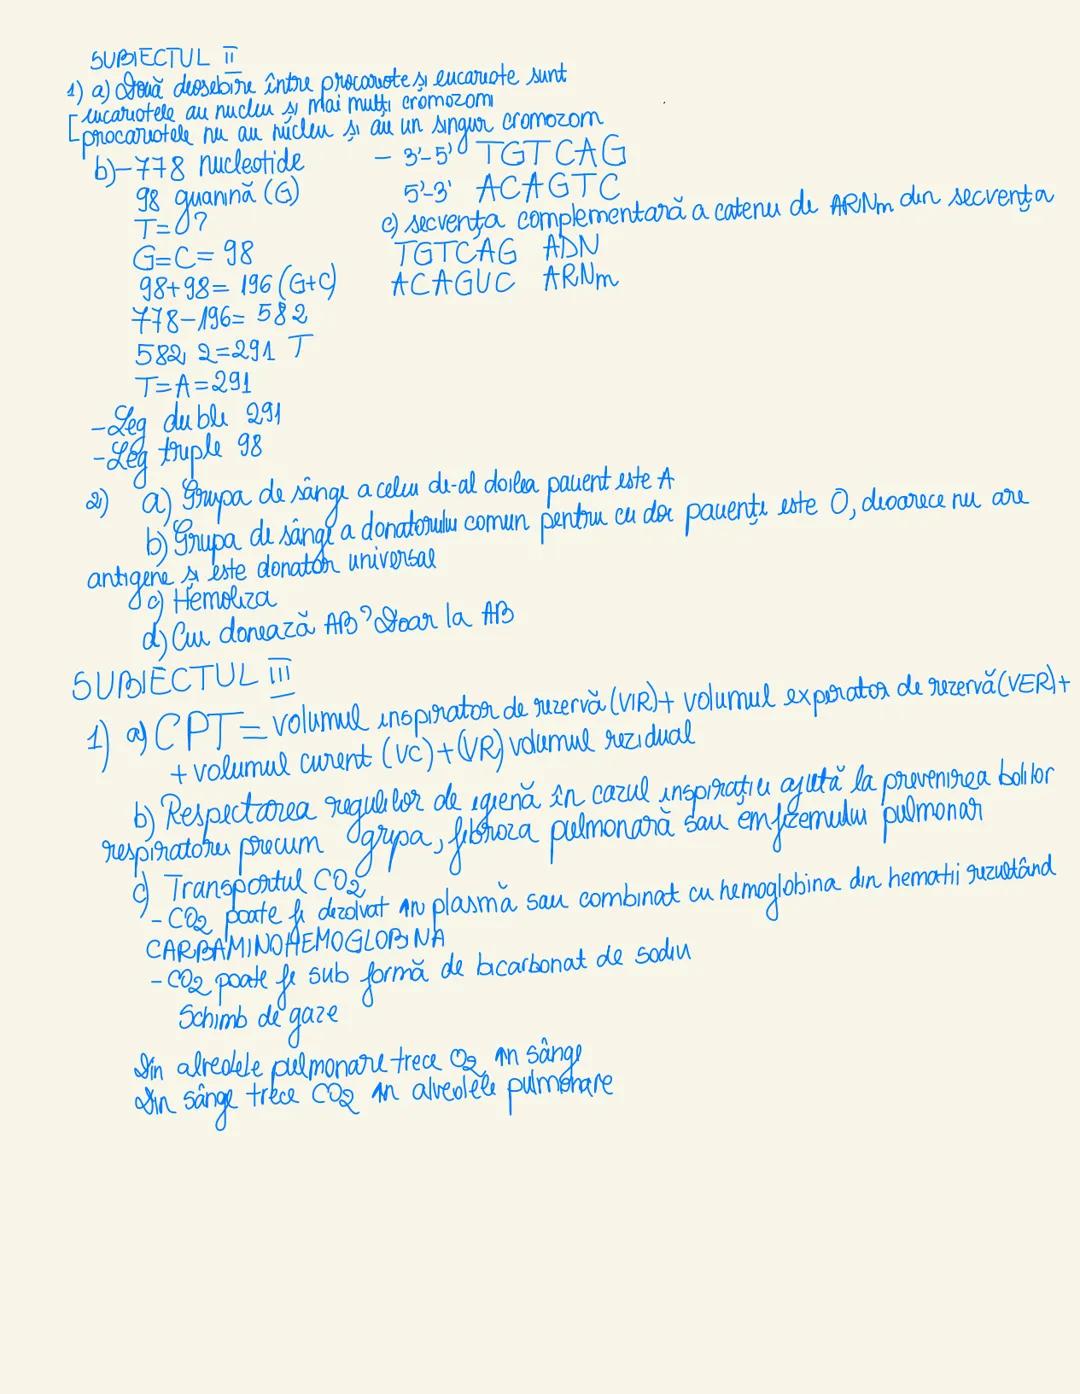 SUBIECTUL II
1) a) Două deosebire între procariote și eucariote sunt
eucariotele au nucleu și mai mulți cromozomi
procariotele nu au nucleu și au un singur cromozom
b) - 778 nucleotide
98 guanină (G)
T=0?
G=C= 98
98+98= 196 (G+C)
778-196= 582
582: 2=291 T
T=A=291
- Leg duble 291
- Leg triple 98
- 3'-5' TGTCAG
5'-3' ACAGTC
c) secvența complementară a catenei de ARNm din secvența
TGTCAG ADN
ACAGUC ARNm
2) a) Grupa de sânge a celui de-al doilea pacient este A
b) Grupa de sânge a donatorului comun pentru cei doi pacienți este 0, deoarece nu are
antigene și este donator universal
c) Hemoliza
d) Cui donează AB? Doar la AB
SUBIECTUL III
1) a) CPT= volumul inspirator de rezervă (VIR)+ volumul expirator de rezervă (VER)+
+ volumul curent (VC)+(VR) volumul rezidual
b) Respectarea regulilor de igienă în cazul inspirației ajută la prevenirea bolilor
respiratorii precum gripa, fibroza pulmonară sau emfizemului pulmonar
c) Transportul CO2
- CO2 poate fi dizolvat în plasmă sau combinat cu hemoglobina din hematii rezultând
CARBAMINOHEMOGLOBINA
- CO2 poate fi sub formă de bicarbonat de sodiu
Schimb de gaze
Din alveolele pulmonare trece O2 în sânge
Din sânge trece CO2 în alveolele pulmonare